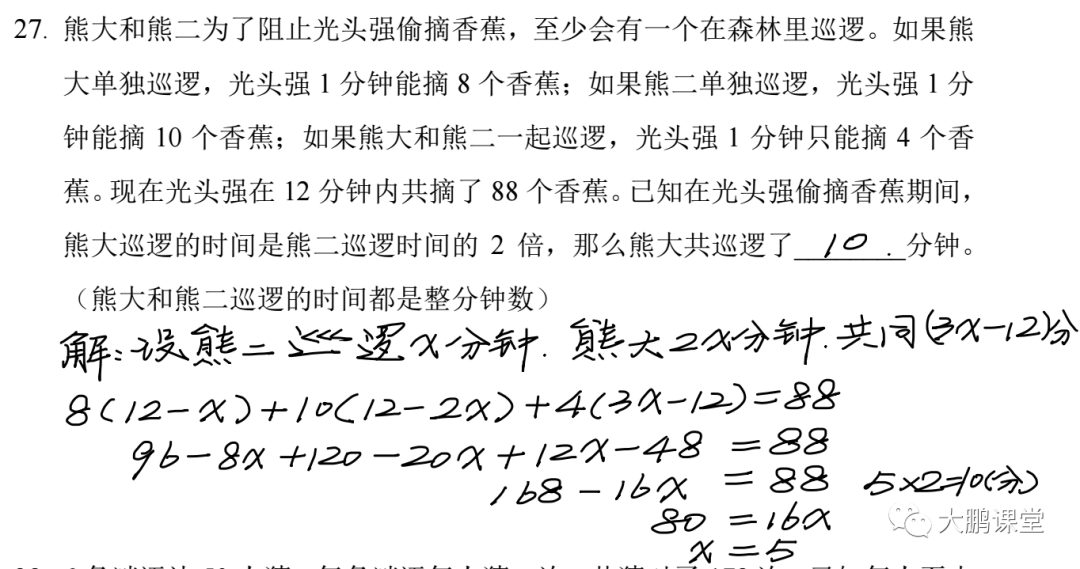 27. 熊大和熊二为了阻止光头强偷摘香蕉，至少会有一个在森林里巡逻。如果熊
大单独巡逻，光头强 1 分钟能摘 8 个香蕉；如果熊二单独巡逻，光头强 1 分
钟能摘 10 个香蕉；如果熊大和熊二一起巡逻，光头强 1 分钟只能摘 4 个香
蕉。现在光头强在 12 分钟内共摘了 88 个香蕉。已知在光头强偷摘香蕉期间，
熊大巡逻的时间是熊二巡逻时间的 2 倍，那么熊大共巡逻了 10 . 分钟。
（熊大和熊二巡逻的时间都是整分钟数）
解:设熊二巡逻x分钟. 熊大2x分钟.共同(3x-12)分
8(12-x)+10(12-2x)+4(3x-12)=88
96-8x+120-20x+12x-48 =88
168-16x = 88 5×2=10(分)
80 =16x
x=5
大鹏课堂